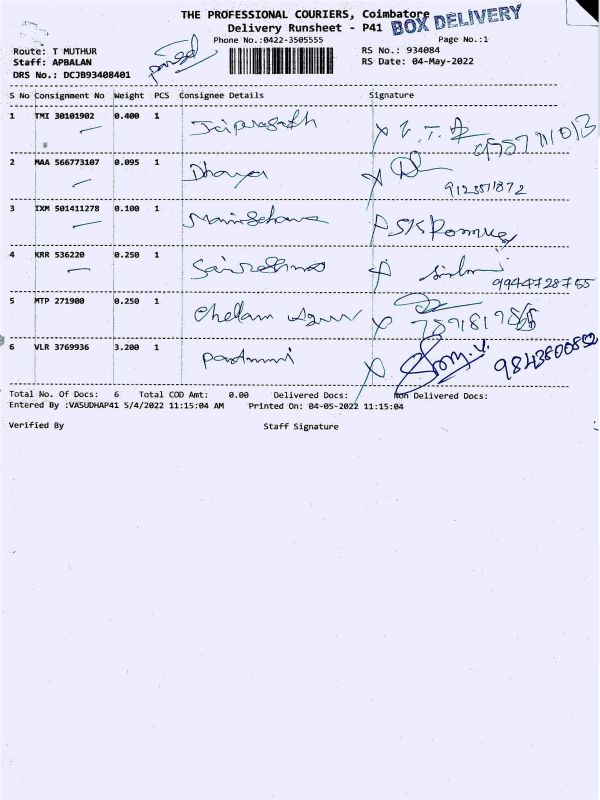 THE PROFESSIONAL COURIERS, Coimbatore
BOX DELIVERY
Delivery Runsheet - P41
Phone No.:0422-3505555
Page No.:1
Route: T MUTHUR
RS No.: 934084
Staff: APBALAN
RS Date: 04-May-2022
DRS No.: DCJB93408401
S No Consignment No Weight PCS Consignee Details Signature
1 TMI 30101902 0.400 1 Jaiprasath
2 MAA 566773107 0.095 1 Dhanya
9123511872
3 IXM 501411278 0.100 1
4 KRR 536220 0.250 1
9944728755
5 MTP 271900 0.250 1 Chellam
6 VLR 3769936 3.200 1
9843800852
Total No. Of Docs: 6 Total COD Amt: 0.00 Delivered Docs: Non Delivered Docs:
Entered By :VASUDHAP41 5/4/2022 11:15:04 AM Printed On: 04-05-2022 11:15:04
Verified By Staff Signature